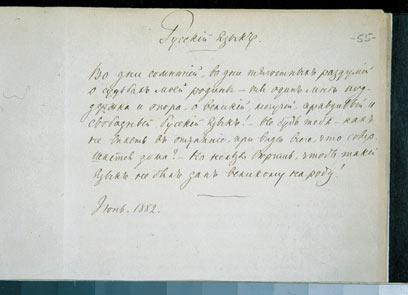 Русскій языкъ.
-55-
Во дни сомнѣній, во дни тягостныхъ раздумій
о судьбахъ моей родины – ты одинъ мнѣ под-
держка и опора, о великій, могучій, правдивый и
свободный Русскій языкъ! – Не будь тебя – какъ
не впасть въ отчаяніе, при видѣ всего, что совер-
шается дома? – Но нельзя вѣрить, чтобы такой
языкъ не былъ данъ великому народу!
Іюнь. 1882.